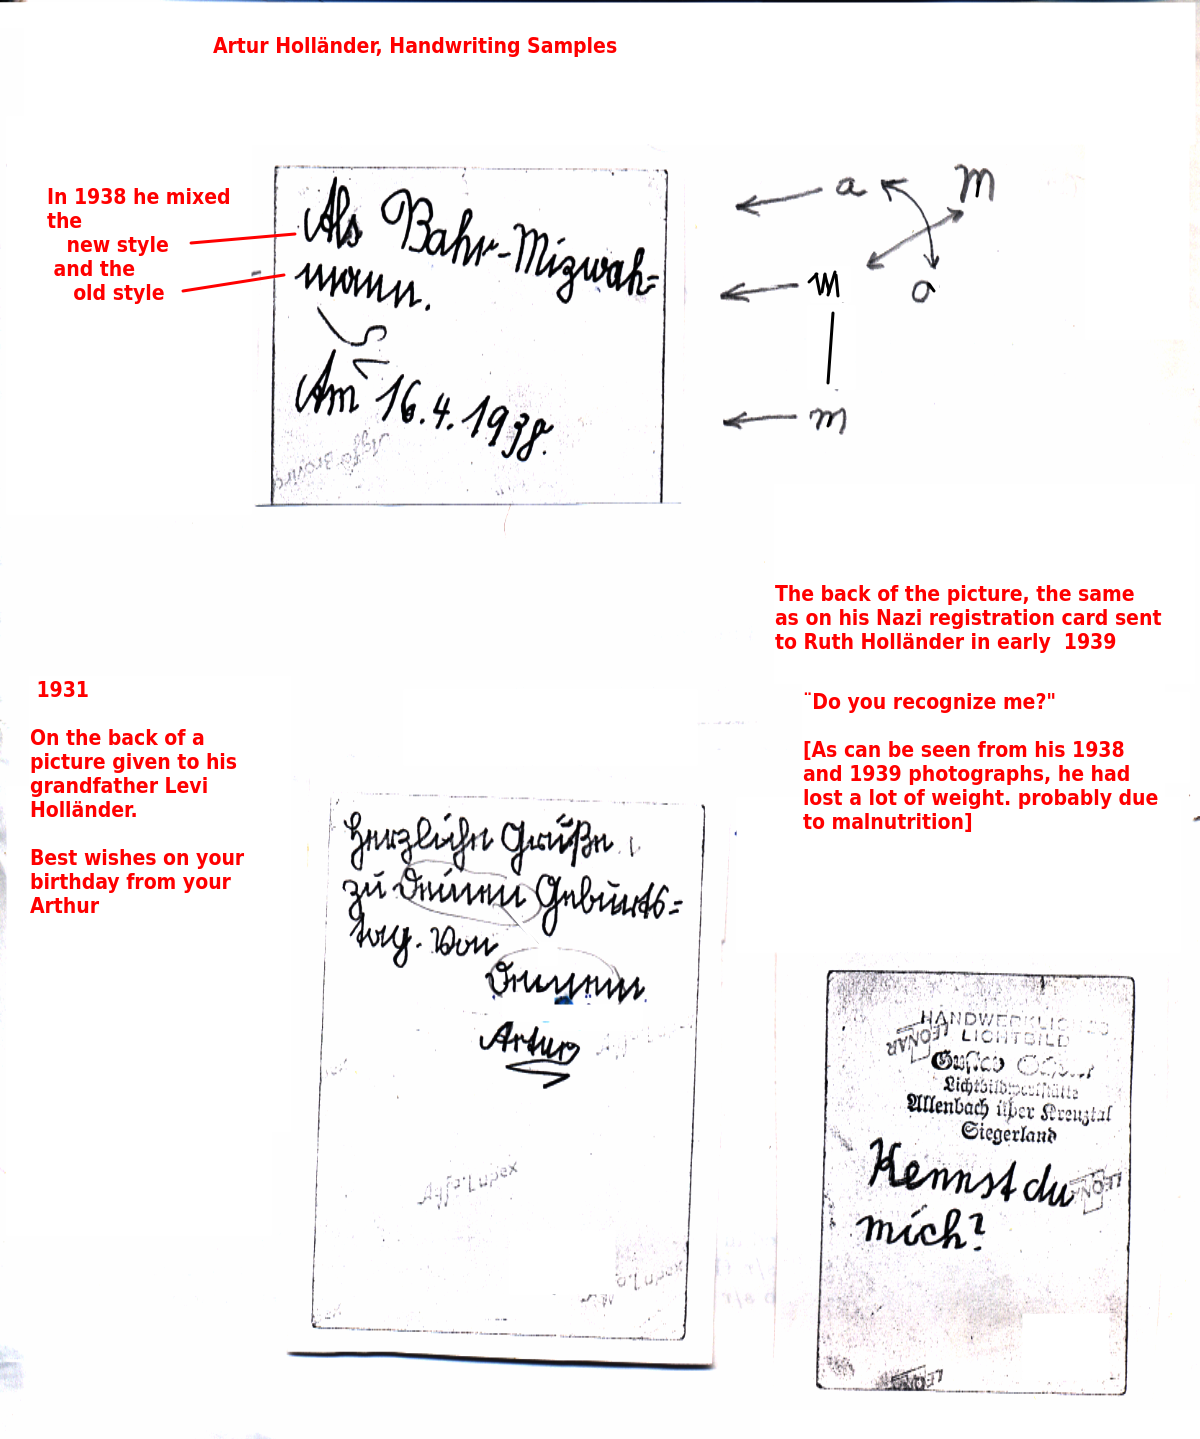 Artur Holländer, Handwriting Samples
In 1938 he mixed
the
new style
and the
old style
Als Bahr-Mizwah=
mann.
Am 16.4.1938.
a m
m a
m
The back of the picture, the same
as on his Nazi registration card sent
to Ruth Holländer in early 1939
¨Do you recognize me?"
[As can be seen from his 1938
and 1939 photographs, he had
lost a lot of weight. probably due
to malnutrition]
1931
On the back of a
picture given to his
grandfather Levi
Holländer.
Best wishes on your
birthday from your
Arthur
Herzliche Grüße
zu Deinen Geburts=
tag. Von
Deinem
Artur
HANDWERKLICHES
LICHTBILD
LEONAR
Lichtbildwerkstätte
Allenbach über Kreuztal
Siegerland
Kennst du
mich?
LEONAR